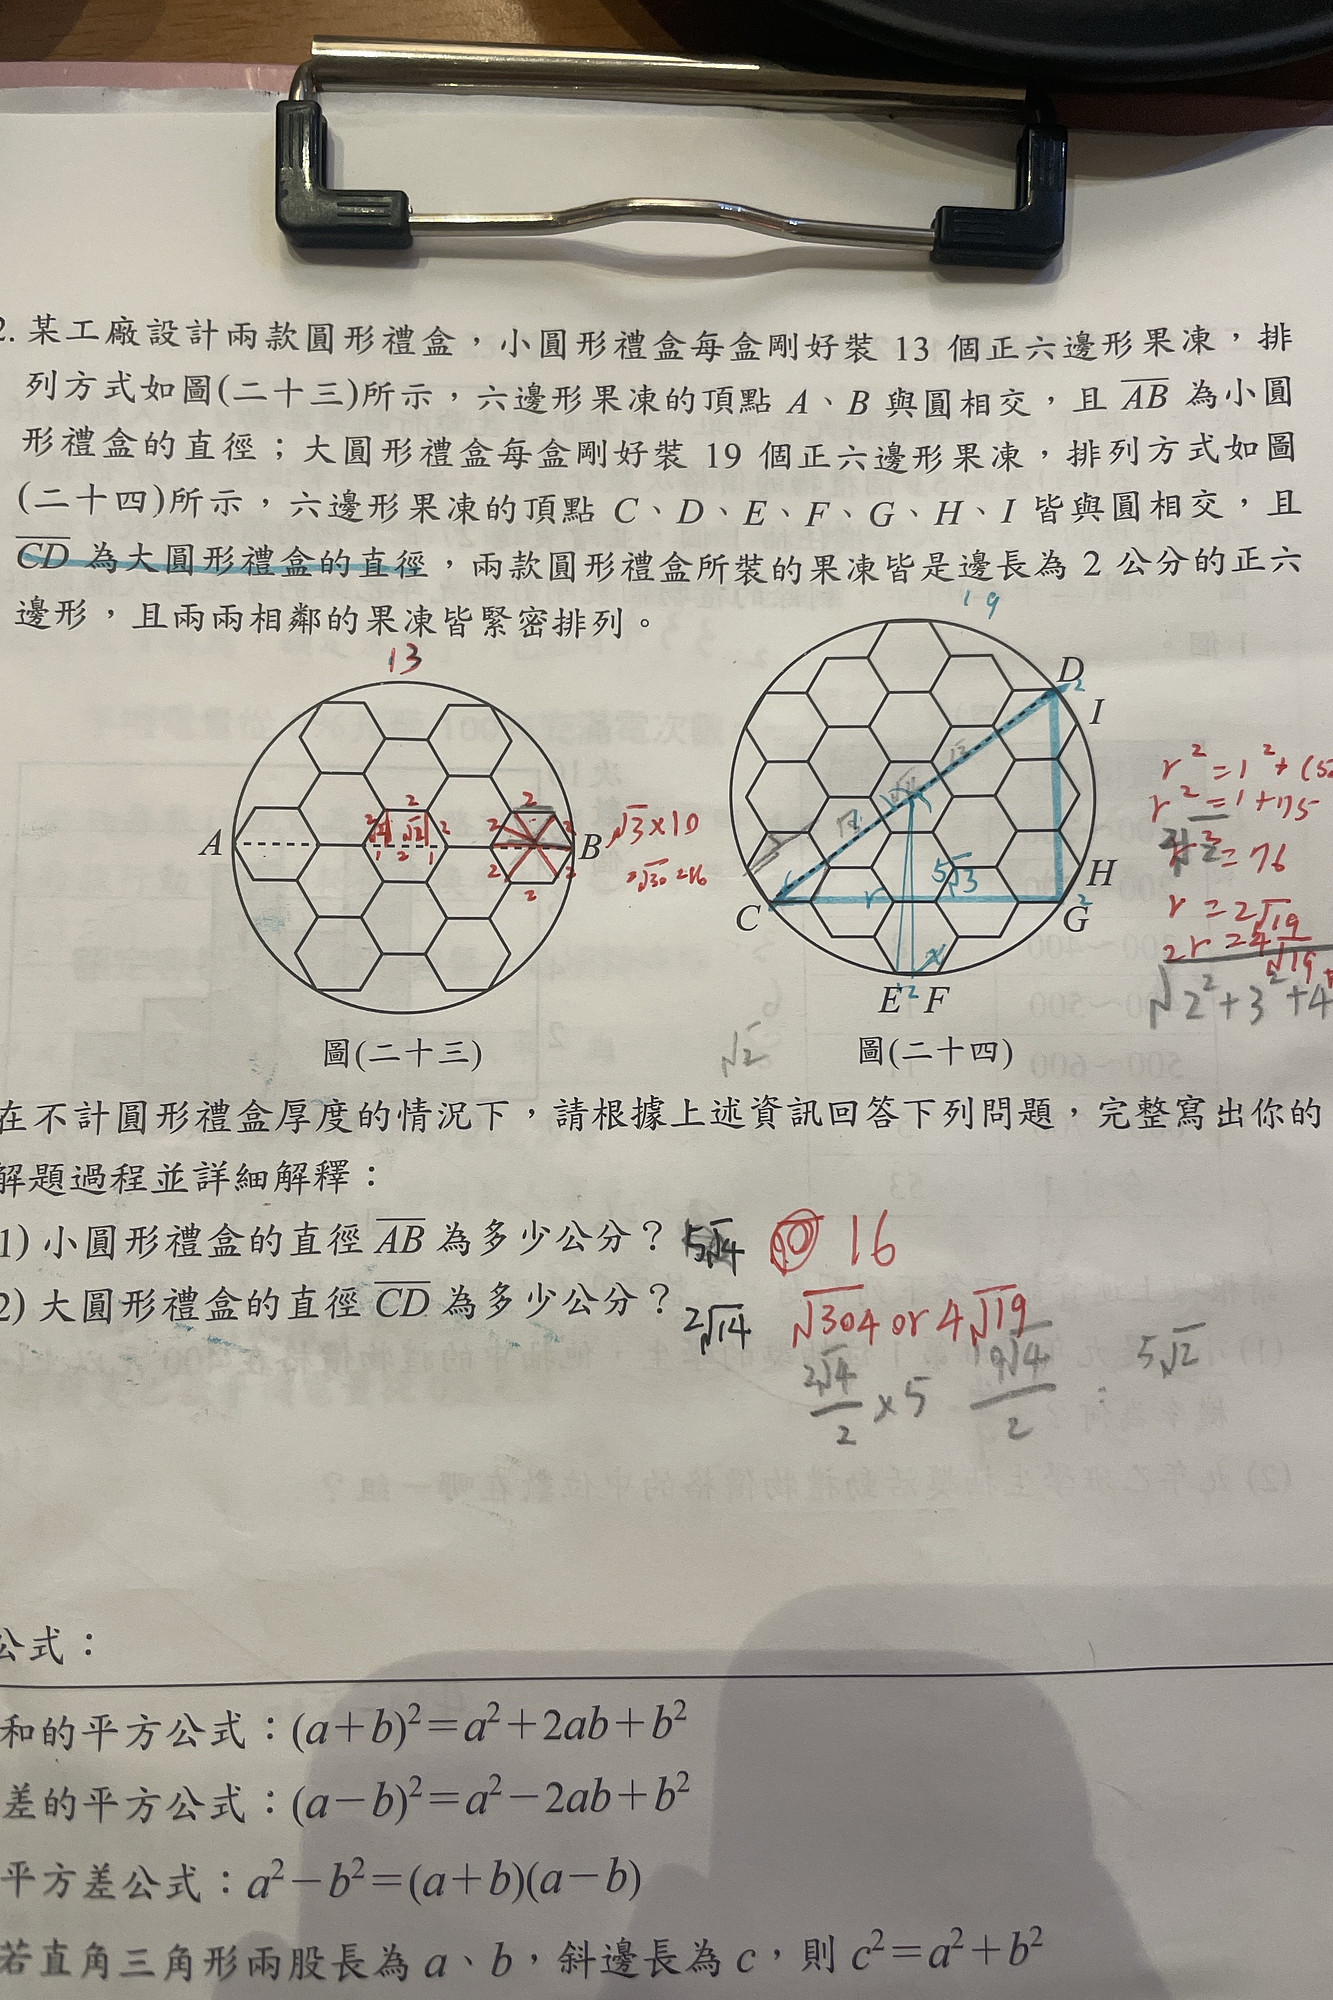 2. 某工廠設計兩款圓形禮盒，小圓形禮盒每盒剛好裝 13 個正六邊形果凍，排
列方式如圖(二十三)所示，六邊形果凍的頂點 A、B 與圓相交，且 AB 為小圓
形禮盒的直徑；大圓形禮盒每盒剛好裝 19 個正六邊形果凍，排列方式如圖
(二十四)所示，六邊形果凍的頂點 C、D、E、F、G、H、I 皆與圓相交，且
CD 為大圓形禮盒的直徑，兩款圓形禮盒所裝的果凍皆是邊長為 2 公分的正六
邊形，且兩兩相鄰的果凍皆緊密排列。
19
13
D
2
I
A
B
2
2
2
2
1
2
1
2
2
2
2
2
√3×10
5√3
r
C
H
G
2
E
2
F
r²=1²+(5
r²=1+75
r²=76
r=2√19
2r=4√19
√2²+3²+4
√2
圖(二十三)
圖(二十四)
在不計圓形禮盒厚度的情況下，請根據上述資訊回答下列問題，完整寫出你的
解題過程並詳細解釋：
1) 小圓形禮盒的直徑 AB 為多少公分？ 5√4 16
2) 大圓形禮盒的直徑 CD 為多少公分？ 2√14 √304 or 4√19
2√4/2 ×5
5√2
公式：
和的平方公式：(a+b)²=a²+2ab+b²
差的平方公式：(a−b)²=a²−2ab+b²
平方差公式：a²−b²=(a+b)(a−b)
若直角三角形兩股長為 a、b，斜邊長為 c，則 c²=a²+b²